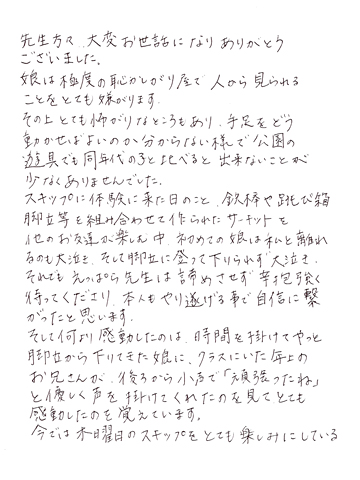 先生方々、大変お世話になりありがとう
ございました。
娘は極度の恥かしがり屋で人から見られる
ことをとても嫌がります。
その上とても怖がりなところもあり、手足をどう
動かせばよいのか分からない様で公園の
遊具でも同年代の子と比べると出来ないことが
少なくありませんでした。
スキップに体験に来た日のこと、鉄棒や跳び箱
脚立等を組み合わせて作られたサーキットを
他のお友達が楽しむ中、初めての娘は私と離れ
るのも大泣き、そして脚立に登って下りられず大泣き、
それでもえっぱら先生は諦めさせず辛抱強く
待ってくださり、本人もやり遂げる事で自信に繋
がったと思います。
そして何より感動したのは、時間を掛けてやっと
脚立から下りてきた娘に、クラスにいた年上の
お兄さんが、後ろから小声で「頑張ったね」
と優しく声を掛けてくれたのを見てとても
感動したのを覚えています。
今では木曜日のスキップをとても楽しみにしている